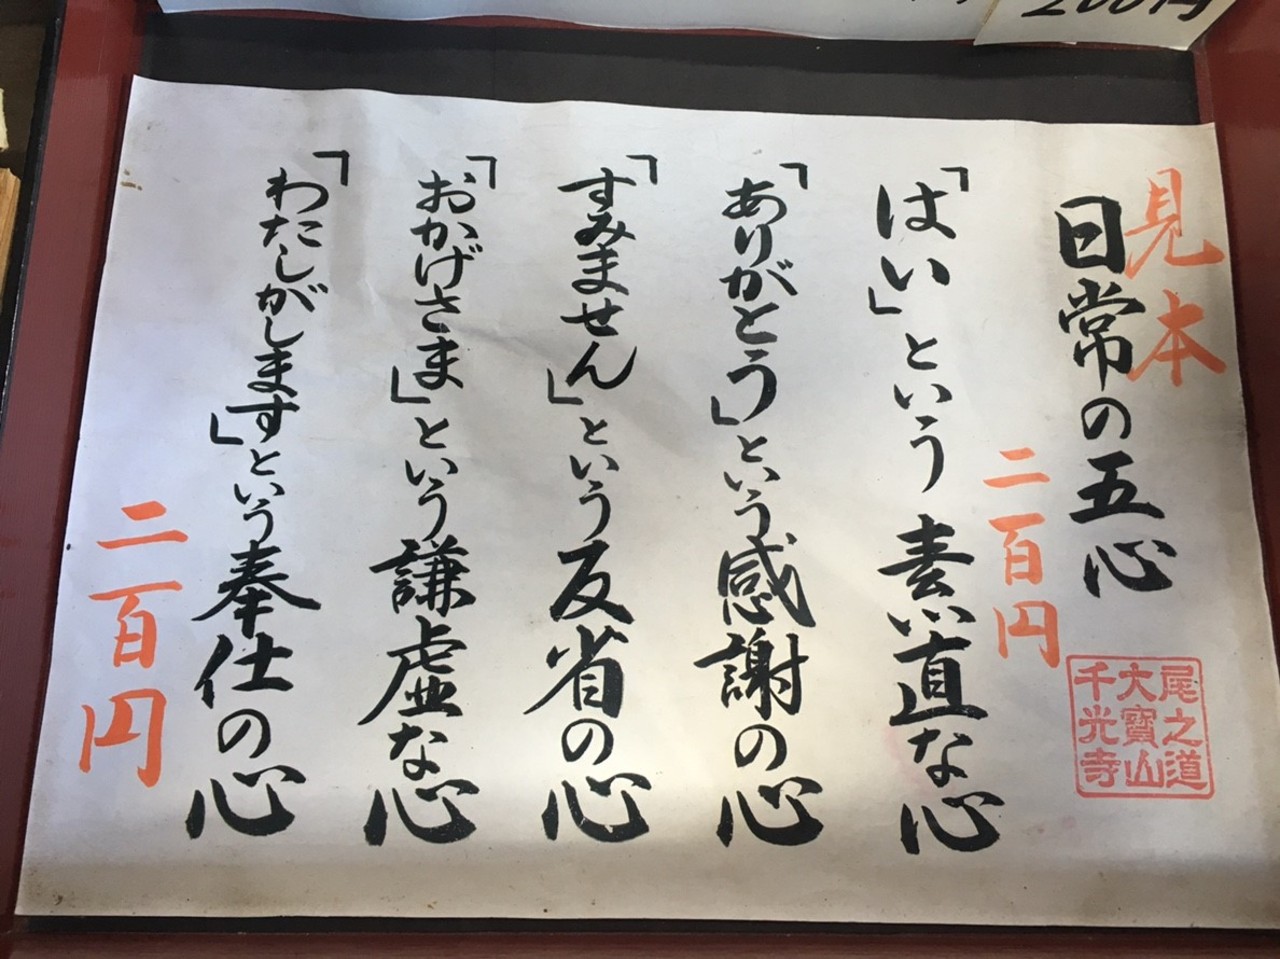 200円
見本
日常の五心
二百円
尾之道
大寶山
千光寺
「はい」という素直な心
「ありがとう」という感謝の心
「すみません」という反省の心
「おかげさま」という謙虚な心
「わたしがします」という奉仕の心
二百円